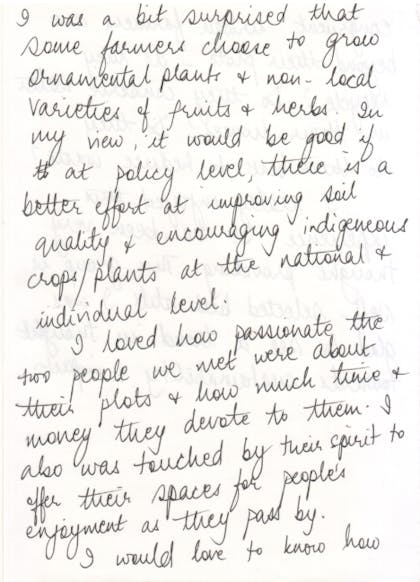 I was a bit surprised that
some farmers choose to grow
ornamental plants & non-local
varieties of fruits & herbs. In
my view, it would be good if
at policy level, there is a
better effort at improving soil
quality & encouraging indigeneous
crops/plants at the national &
individual level.
I loved how passionate the
two people we met were about
their plots & how much time &
money they devote to them. I
also was touched by their spirit to
offer their spaces for people's
enjoyment as they pass by.
I would love to know how